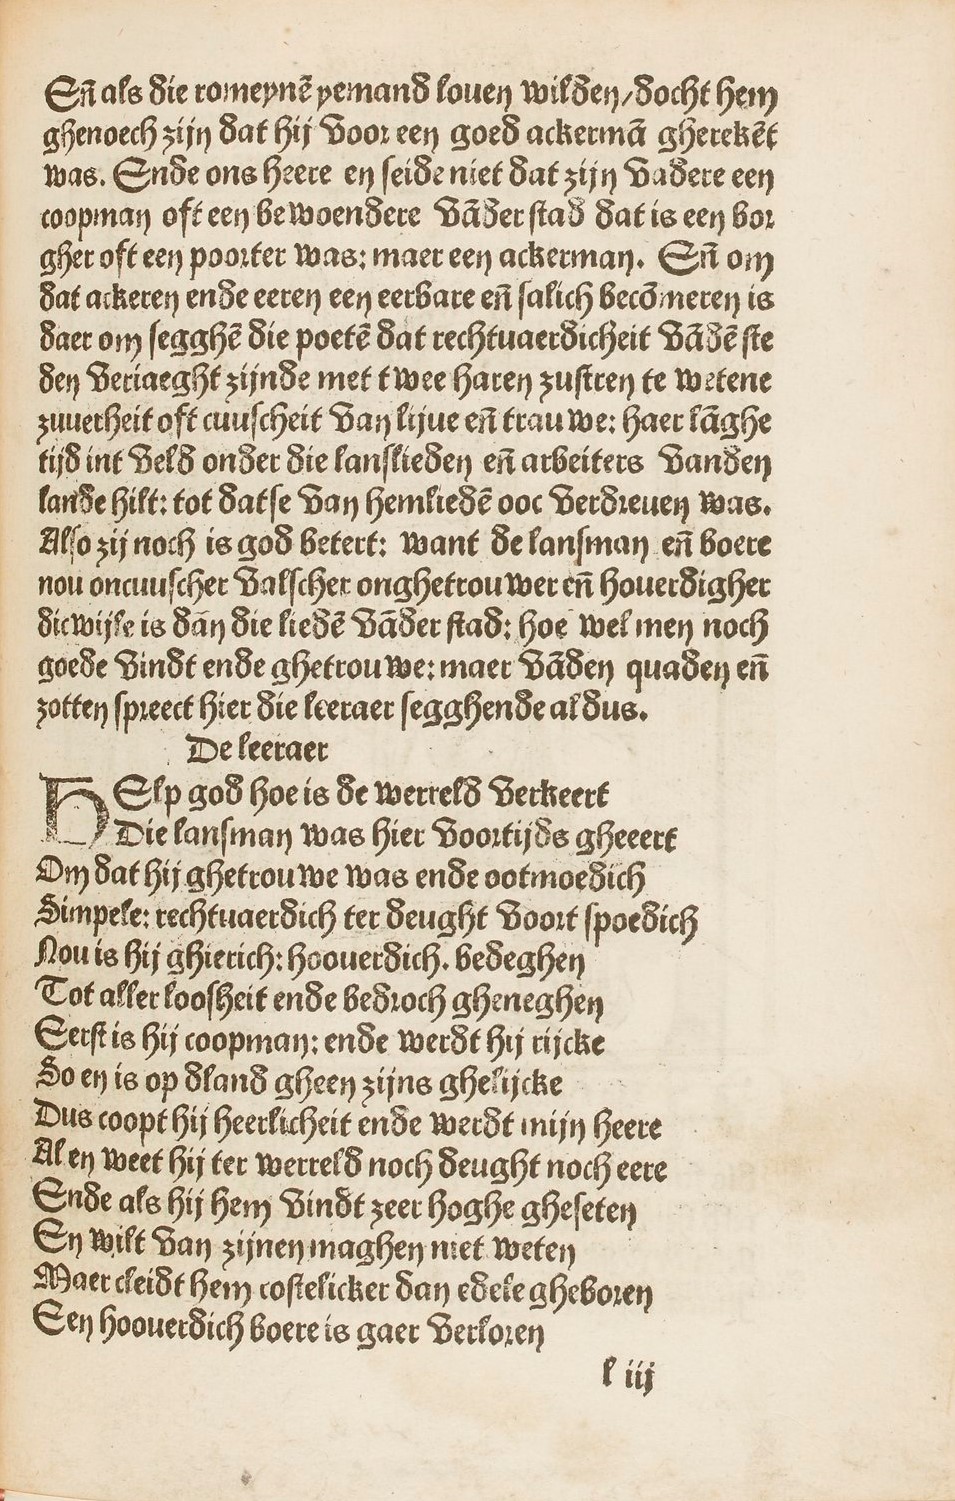 Eñ als die romeynē yemand louen wilden/docht hem
ghenoech zijn dat hij voor een goed ackermā gherekēt
was. Ende ons heere en seide niet dat zijn vadere een
coopman oft een bewoendere vāder stad dat is een bor
gher oft een poorter was: maer een ackerman. Eñ om
dat ackeren ende eeren een eerbare eñ salich becōmeren is
daer om segghē die poetē dat rechtuaerdicheit vādē ste
den veriaeght zijnde met twee haren zustren te wetene
zuuerheit oft cuuscheit van lijue eñ trauwe: haer lāghe
tijd int veld onder die lanslieden eñ arbeiters vanden
lande hilt: tot datse van hemliedē ooc verdreuen was.
Also zij noch is god betert: want de lansman eñ boere
nou oncuuscher valscher onghetrouwer eñ houerdigher
dicwijle is dān die liedē vāder stad: hoe wel men noch
goede vindt ende ghetrouwe: maer vāden quaden eñ
zotten spreect hier die leeraer segghende aldus.
De leeraer
HElp god hoe is de werreld verkeert
Die lansman was hier voortijds gheeert
Om dat hij ghetrouwe was ende ootmoedich
Simpele: rechtuaerdich ter deught voort spoedich
Nou is hij ghierich: hoouerdich. bedeghen
Tot aller loosheit ende bedroch gheneghen
Eerst is hij coopman: ende werdt hij rijcke
So en is op dland gheen zijns ghelijcke
Dus coopt hij heerlicheit ende werdt mijn heere
Al en weet hij ter werreld noch deught noch eere
Ende als hij hem vindt zeer hoghe gheseten
En wilt van zijnen maghen niet weten
Maer cleidt hem costelicker dan edele gheboren
Een hoouerdich boere is gaer verloren
l iij